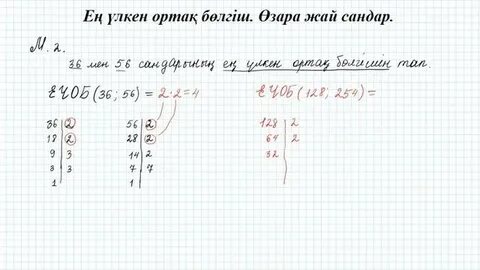 Ең үлкен ортақ бөлгіш. Өзара жай сандар.
М. 2.
36 мен 56 сандарының ең үлкен ортақ бөлгішін тап.
ЕҮОБ(36; 56) = 2·2=4 ЕҮОБ(128; 254) =
36 | 2 56 | 2 128 | 2
18 | 2 28 | 2 64 | 2
9 | 3 14 | 2 32 |
3 | 3 7 | 7
1 | 1 |